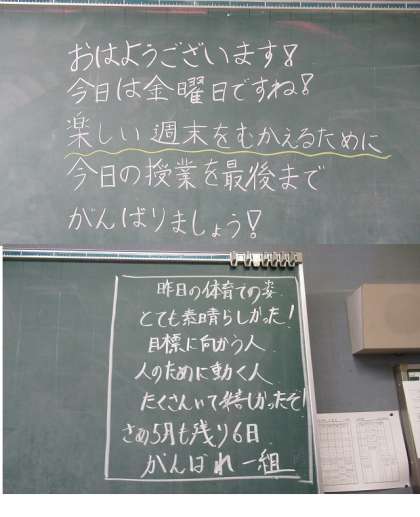 おはようございます!
今日は金曜日ですね!
楽しい週末をむかえるために
今日の授業を最後まで
がんばりましょう!
昨日の体育での姿
とても素晴らしかった!
目標に向かう人
人のために動く人
たくさんいて嬉しかったぞ!
さあ5月も残り6日
がんばれ一組